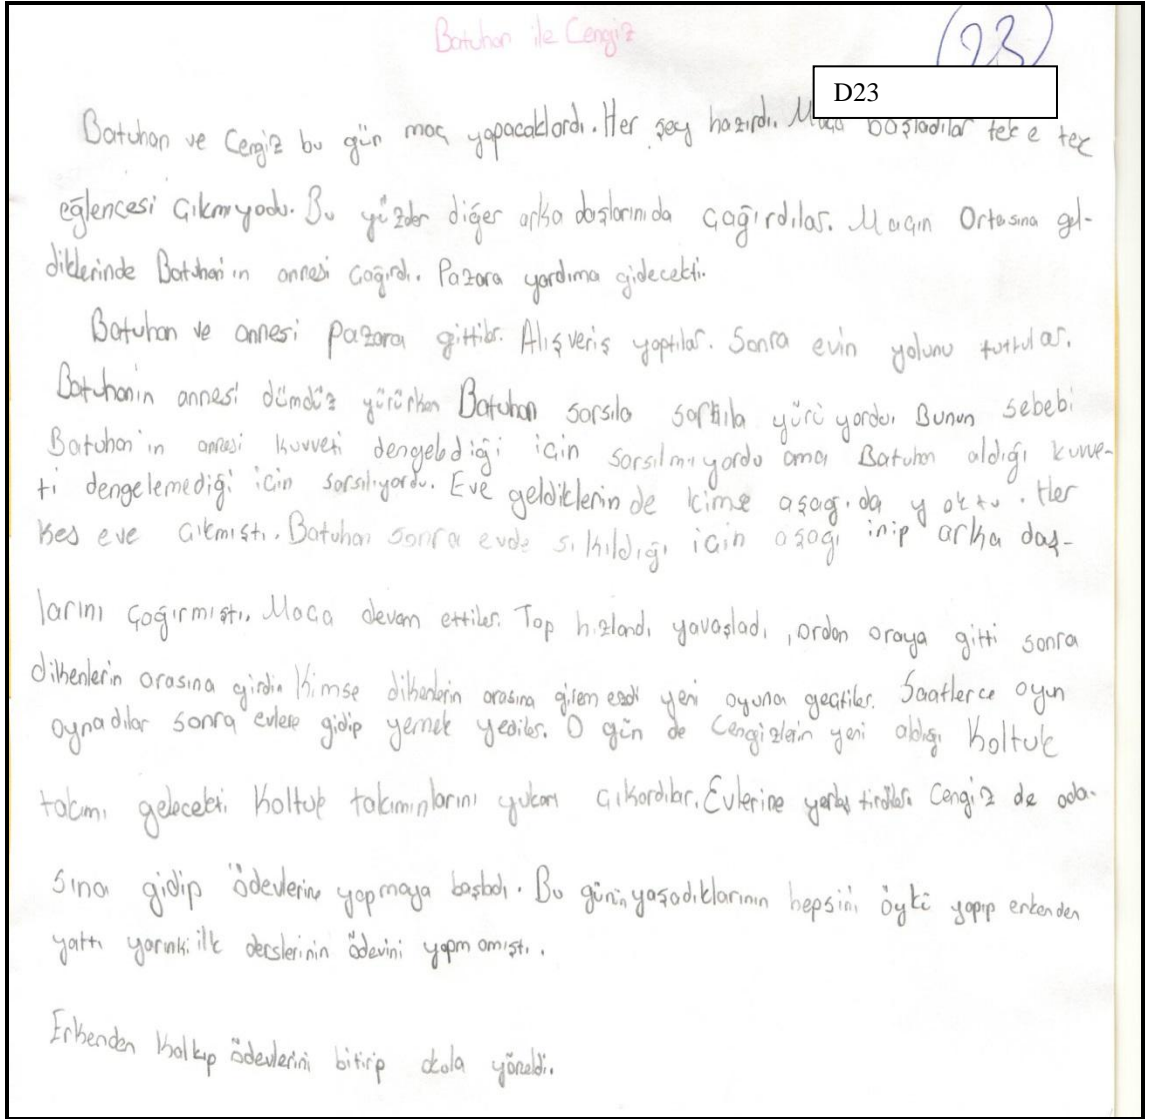 Batuhan ile Cengiz
(23)
D23
Batuhan ve Cengiz bu gün maç yapacaklardı. Her şey hazırdı. Maça başladılar tek e tek
eğlencesi çıkmıyodu. Bu yüzden diğer arka daşlarınıda çağırdılar. Maçın Ortasına gel-
diklerinde Batuhan'ın annesi çağırdı. Pazara yardıma gidecekti.
Batuhan ve annesi pazara gittiler. Alış veriş yaptılar. Sonra evin yolunu tuttular.
Batuhanın annesi dümdüz yürürken Batuhan sarsıla sarsıla yürü yordu. Bunun sebebi
Batuhan'ın annesi kuvveti dengelediği için sarsılmıyordu ama Batuhan aldığı kuvve-
ti dengelemediği için sarsılıyordu. Eve geldiklerin de kimse aşağıda y oktu. Her
kes eve çıkmıştı. Batuhan sonra evde sıkıldığı için aşağı inip arka daş-
larını çağırmıştı. Maça devam ettiler. Top hızlandı yavaşladı, ordan oraya gitti sonra
dikenlerin arasına girdi. Kimse dikenlerin arasına girem edi yeni oyuna geçtiler. Saatlerce oyun
oynadılar sonra evlere gidip yemek yediler. O gün de Cengizlerin yeni aldığı koltuk
takımı gelecekti koltuk takımınlarını yukarı çıkardılar. Evlerine yerleş tirdiler. Cengiz de oda-
sına gidip ödevlerine yapmaya başladı. Bu günün yaşadıklarının hepsini öykü yapıp erkenden
yattı yarınki ilk derslerinin ödevini yapm amıştı.
Erkenden kalkıp ödevlerini bitirip okula yöneldi.